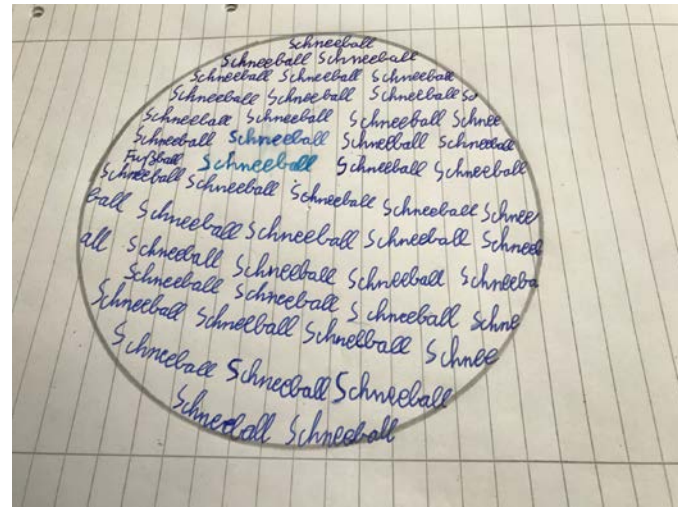 Schneeball
Schneeball Schneeball
Schneeball Schneeball Schneeball
Schneeball Schneeball Schneeball Sc
Schneeball Schneeball Schneeball Schnee
Schneeball Schneeball Schneeball Schneeball
Fußball Schneeball Schneeball Schneeball
Schneeball Schneeball Schneeball Schneeball Schnee
ball Schneeball Schneeball Schneeball Schneeb
all Schneeball Schneeball Schneeball Schneeba
Schneeball Schneeball Schneeball Schne
Schneeball Schneeball Schneeball Schnee
Schneeball Schneeball Schneeball
Schneeball Schneeball